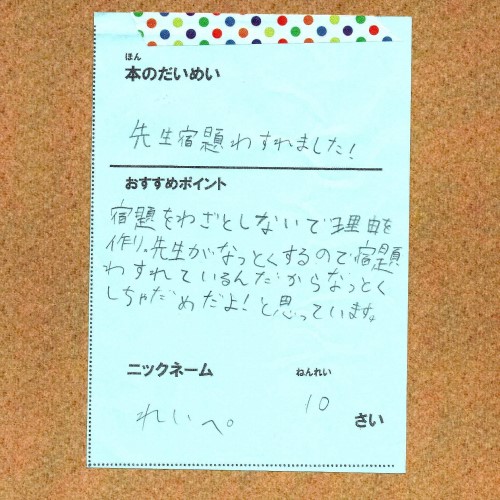 ほん
本のだいめい
先生宿題わすれました!
おすすめポイント
宿題をわざとしないで理由を
作り。先生がなっとくするので宿題
わすれているんだからなっとく
しちゃだめだよ!と思っています。
ニックネーム
ねんれい
れいぺ。
10
さい